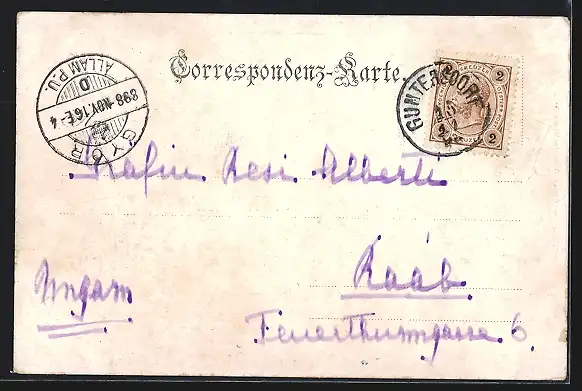 Correspondenz-Karte.
GYŐR
ÁLLAM P.U.
D
898 NOV. 16 E. 4
GUNTERSDORF
2 KREUZER 2
2 2
Gräfin Resi Alberti
Raab
Ungarn
Feuerthurmgasse 6